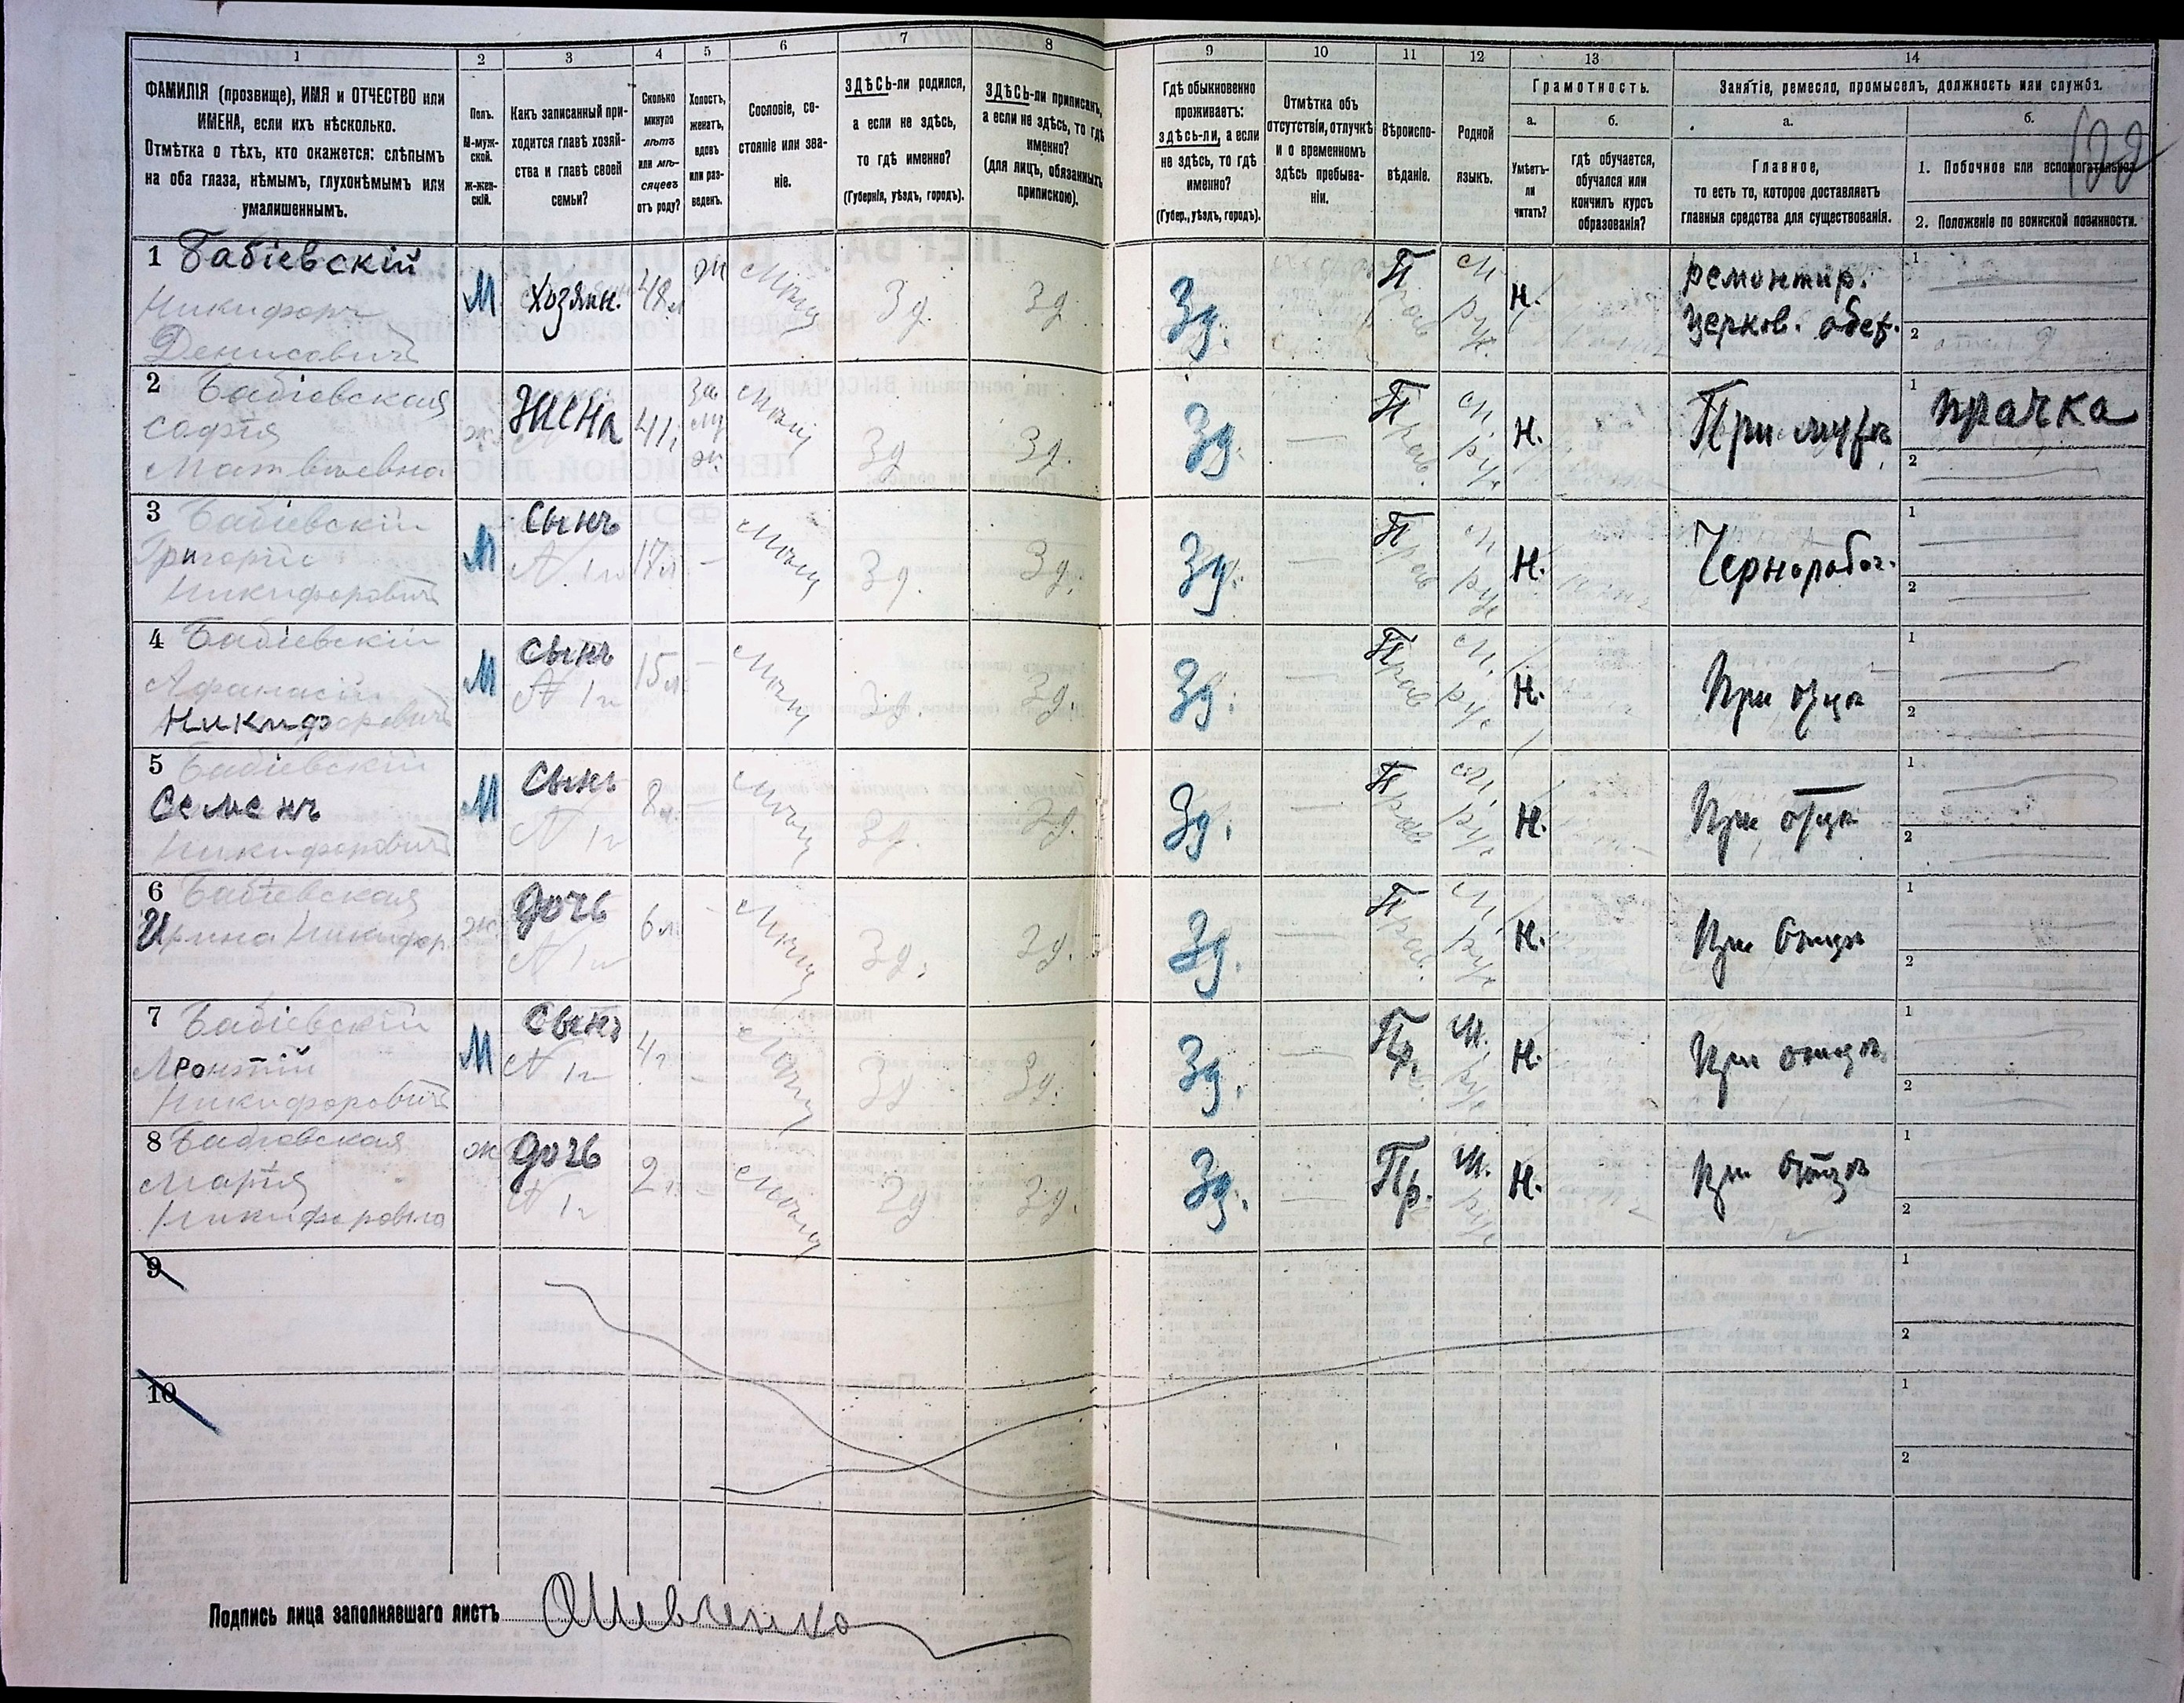 1
2
3
4
5
6
7
8
9
10
11
12
13
14
ФАМИЛІЯ (прозвище), ИМЯ и ОТЧЕСТВО или
ИМЕНА, если ихъ нѣсколько.
Отмѣтка о тѣхъ, кто окажется: слѣпымъ
на оба глаза, нѣмымъ, глухонѣмымъ или
умалишеннымъ.
Полъ.
М-муж-
ской.
Ж-жен-
скій.
Какъ записанный при-
ходится главѣ хозяй-
ства и главѣ своей
семьи?
Сколько
минуло
лѣтъ
или мѣ-
сяцевъ
отъ роду?
Холостъ,
женатъ,
вдовъ
или раз-
веденъ.
Сословіе, со-
стояніе или зва-
ніе.
ЗДѢСЬ-ли родился,
а если не здѣсь,
то гдѣ именно?
(Губернія, уѣздъ, городъ).
ЗДѢСЬ-ли приписанъ,
а если не здѣсь, то гдѣ
именно?
(для лицъ, обязанныхъ
припискою).
Гдѣ обыкновенно
проживаетъ:
здѣсь-ли, а если
не здѣсь, то гдѣ
именно?
(Губер., уѣздъ, городъ).
Отмѣтка объ
отсутствіи, отлучкѣ
и о временномъ
здѣсь пребыва-
ніи.
Вѣроиспо-
вѣданіе.
Родной
языкъ.
Грамотность.
а.
Умѣетъ-
ли
читать?
б.
гдѣ обучается,
обучался или
кончилъ курсъ
образованія?
Занятіе, ремесло, промыселъ, должность или служба.
а.
Главное,
то есть то, которое доставляетъ
главныя средства для существованія.
б.
1. Побочное или вспомогательное.
2. Положеніе по воинской повинности.
1 Бабіевскій
Никифоръ
Денисовичъ
М
Хозяин.
48 л
ж
Мѣщ
Зд.
Зд.
Зд.
Прав
М
рус.
Н.
ремонтир.
церков.
1
2
2 Бабіевская
Софія
Матвѣевна
ж
жена
41
За
муж
Мѣщ
Зд
Зд.
Зд.
Прав.
М.
рус
Н.
При мужѣ
1 прачка
2
3 Бабіевскій
Григорій
Никифоровичъ
М
Сынъ
N 1го
17 л
Мѣщ
Зд.
Зд.
Зд.
Прав
М
рус
Н.
Чернорабоч.
1
2
4 Бабіевскій
Афанасій
Никифоровичъ
М
Сынъ
N 1го
15 л
Мѣщ
Зд.
Зд.
Зд.
Прав
М.
рус
Н.
При отцѣ
1
2
5 Бабіевскій
Семенъ
Никифоровичъ
М
Сынъ
N 1го
8 л.
Мѣщ
Зд.
Зд.
Зд.
Прав
М.
рус
Н.
При отцѣ
1
2
6 Бабіевская
Ирина Никифор.
ж
дочь
N 1го
6 л.
Мѣщ
Зд.
Зд.
Зд.
Прав.
М
рус
Н.
При отцѣ
1
2
7 Бабіевскій
Никифоровичъ
М
Сынъ
N 1го
4 г
Мѣщ
Зд
Зд.
Зд.
Пр.
М.
рус
Н.
При отцѣ
1
2
8 Бабіевская
Марія
Никифоровна
ж
дочь
N 1го
2 г
Мѣщ
Зд
Зд.
Зд.
Пр.
М.
рус
Н.
При отцѣ
1
2
9
1
2
10
1
2
Подпись лица заполнявшаго листъ Шевченко